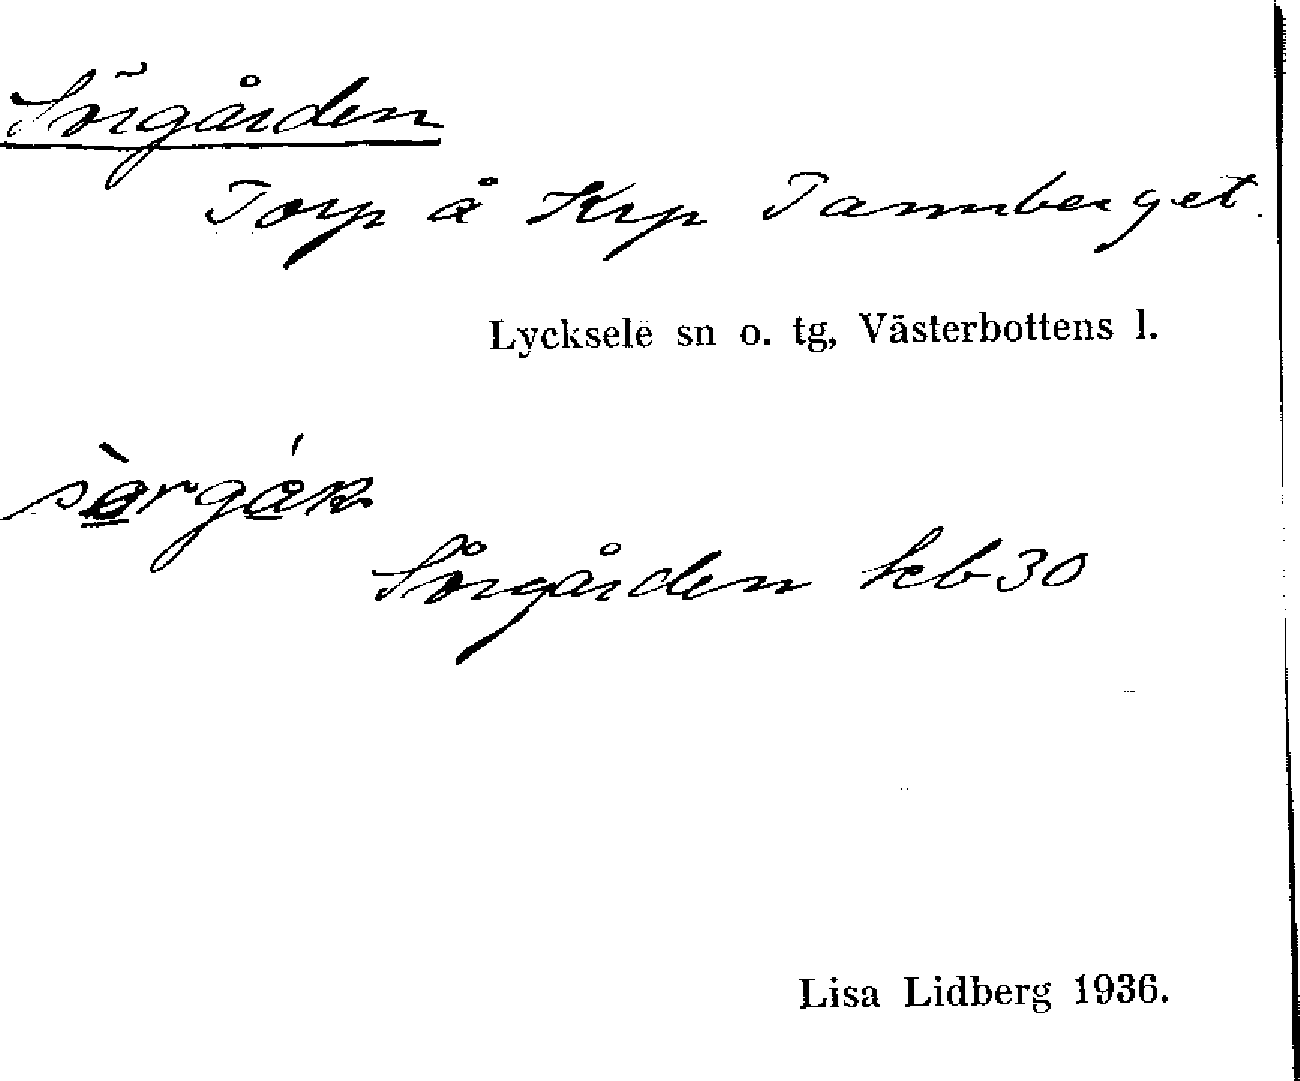 Sörgården
Torp å Krp Tannberget.
Lycksele sn o. tg, Västerbottens l.
Sörgården kb 30
Lisa Lidberg 1936.